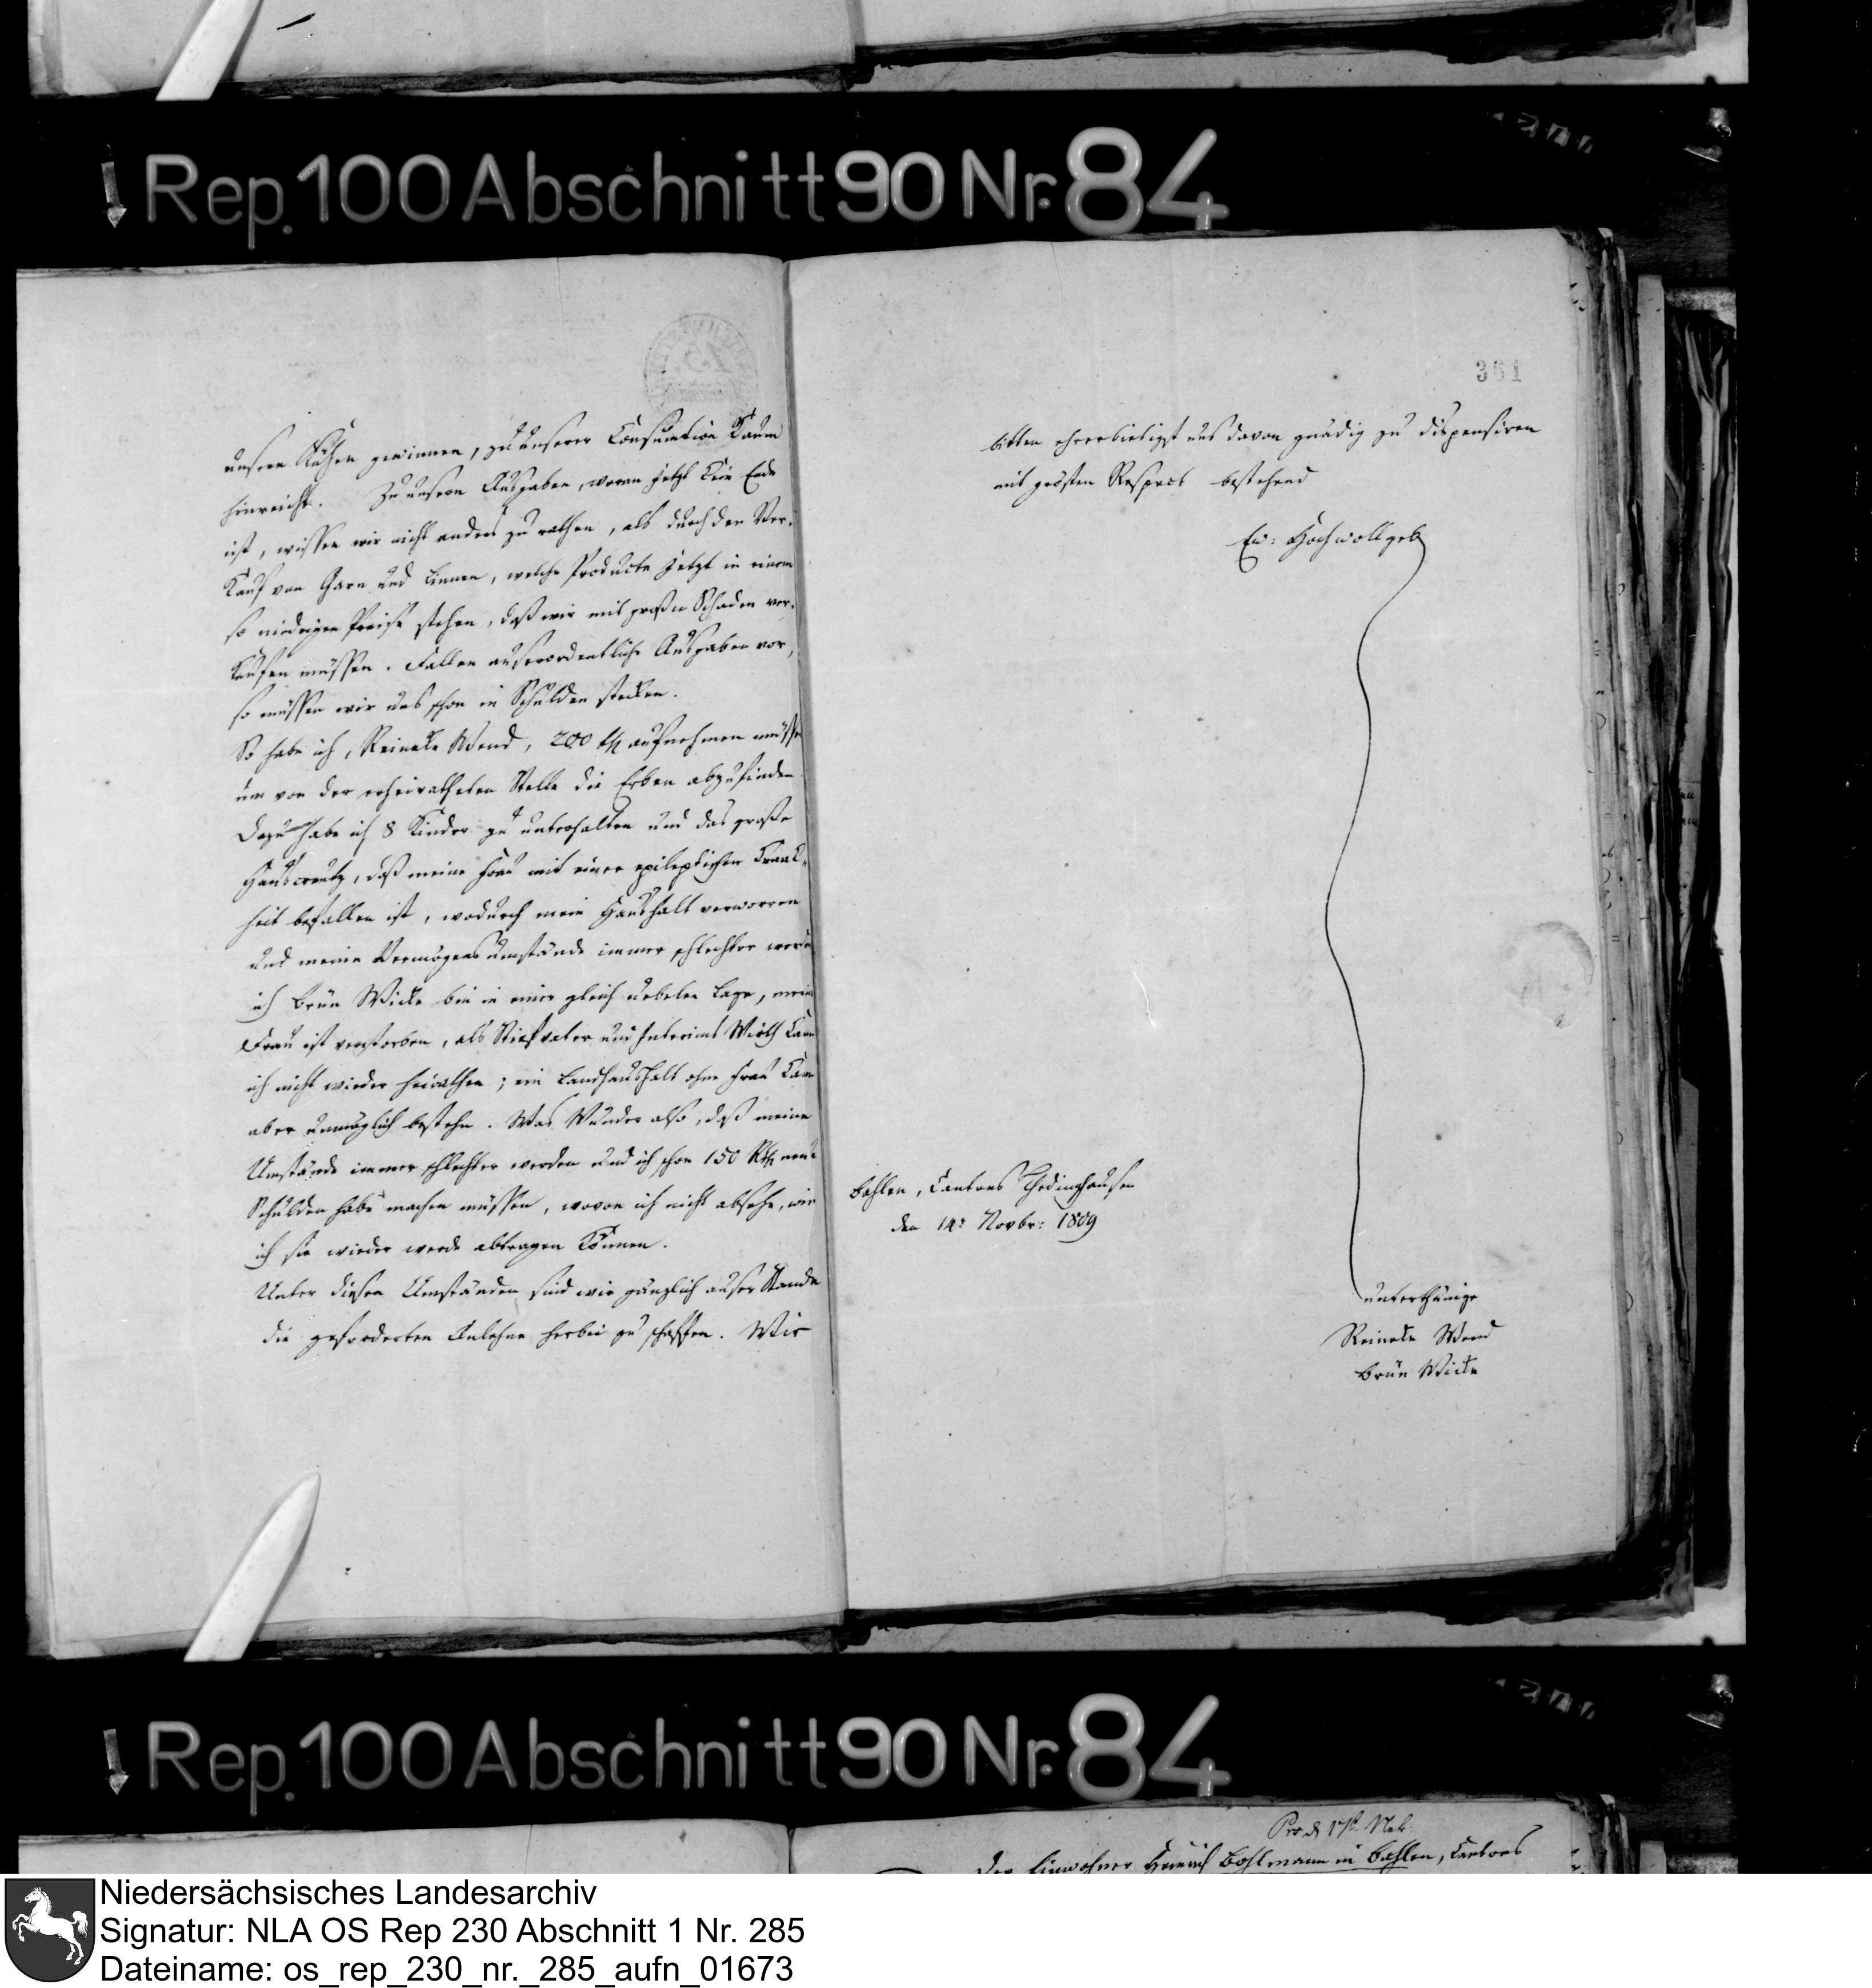 Rep. 100 Abschnitt 90 Nr. 84
unsern Kühen gewinnen, zu unserer Consumtion kaum
hinreicht. Zu unsern Ausgaben, woran jetzt kein Ende
ist, wissen wir nicht anders zu rathen, als durch den Ver-
kauf von Garn und Linnen, welche Producte jetzt in einem
so niedrigen Preise stehen, daß wir mit großen Schaden ver-
kaufen müssen. Fallen auserordentliche Ausgaben vor,
so müssen wir uns schon in Schulden stecken.
So habe ich, Reineke Wend, 200 rh aufnehmen müssen
um von der erheiratheten Stelle die Erben abzufinden
Dazu habe ich 8 Kinder zu unterhalten und das große
Hauscreutz, daß meine Frau mit einer epileptischen Krank-
heit befallen ist, wodurch mein Haushalt verworren
und meine Vermögensumstände immer schlechter werden
ich Brün Wicke bin in einer gleich uebelen Lage, meine
Frau ist verstorben, als Stiefvater und Interims Wirth kann
ich nicht wieder heirathen; ein Landhaushalt ohne Frau kann
aber unmöglich bestehn. Was Wunder also, daß meine
Umstände immer schlechter werden und ich schon 150 Rth neue
Schulden habe machen müssen, wovon ich nicht absehe, wie
ich sie wieder werde abtragen können.
Unter diesen Umständen sind wir gänzlich auser Stande
die geforderten Anlehne herbei zu schaffen. Wir
361
bitten ehrerbietigst uns davon gnädig zu dispensiren
mit grösten Respect bestehend
Ew: Hochwollgeb
Bahlen, Cantons Thedinghausen
den 14t Novbr: 1809
unterthänige
Reineke Wend
Brün Wicke
Rep. 100 Abschnitt 90 Nr. 84
Der Einwohner Heinrich Bohlmann in Bahlen, Cantons
Niedersächsisches Landesarchiv
Signatur: NLA OS Rep 230 Abschnitt 1 Nr. 285
Dateiname: os_rep_230_nr._285_aufn_01673